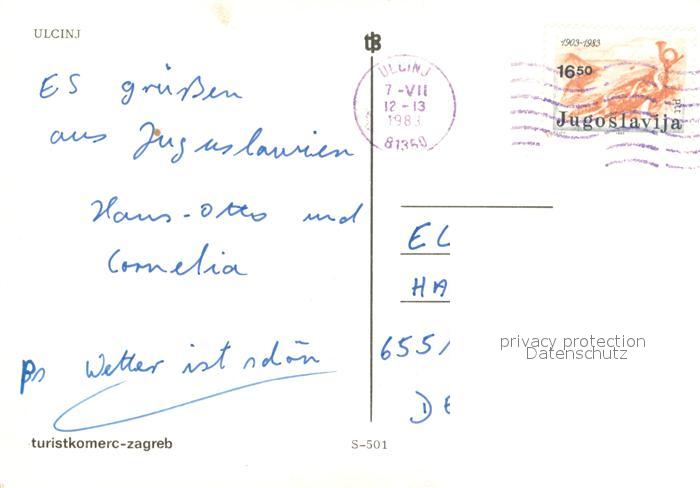 ULCINJ
ES grüßen
aus Juguslawien
Hans-Otto und
Cornelia
Ps Wetter ist schön
turistkomerc-zagreb
S-501
ULCINJ
7-VII
12-13
1983
81350
1903-1983
1650
Jugoslavija
EL
HA
655
DE
privacy protection
Datenschutz